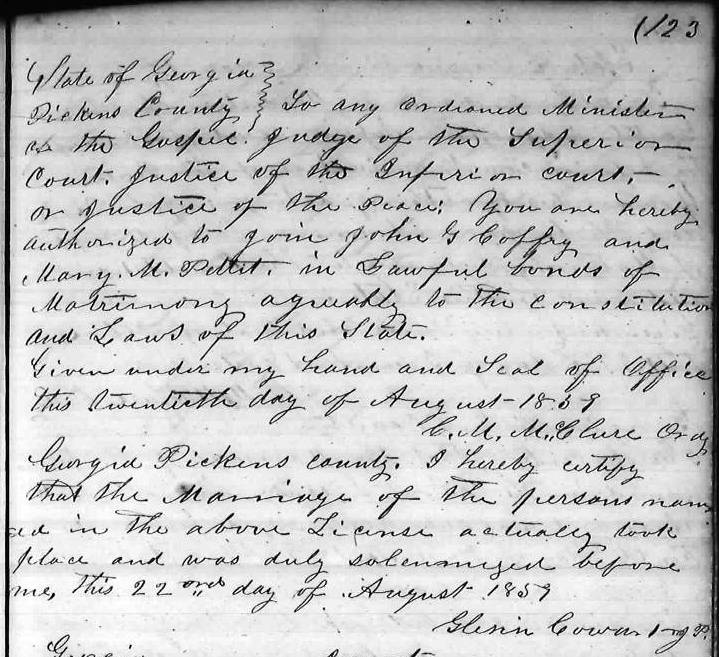 (123
State of Georgia }
Pickens County } To any Ordioned Minister
of the Gospel. Judge of the Superior
Court. Justice of the Inferior court,
or Justice of the Peace: You are hereby
authorized to join John G Coffey and
Mary. M. Pettit. in Lawful bonds of
Matrimony agreeably to the constitution
and Laws of this State.
Given under my hand and Seal of Office
this twentieth day of August 1859
C. M. McClure Ordy
Georgia Pickens county. I hereby certify
that the Marriage of the persons nam
ed in the above License actually took
place and was duly solemnized before
me, this 22 ond day of August 1859
Glenn Cowart J. P.